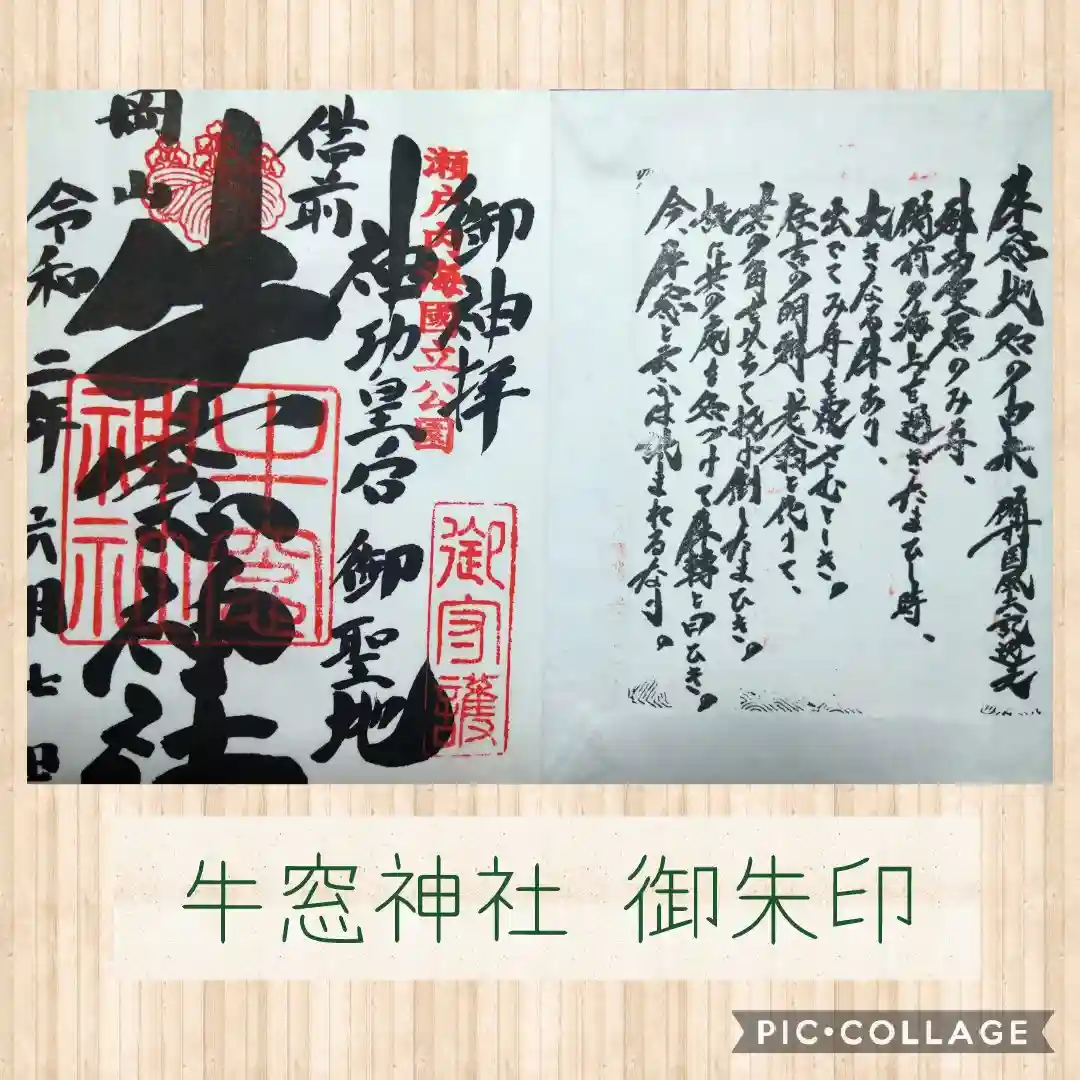 牛窓地名の由来 備国風土記逸文
神功皇后のみ舟、
備前の海上を過ぎたまひし時、
大きなる牛あり、
出でてみ舟を覆さむとしき。
住吉の明神、老翁と化りて、
其の角を以ちて投げ倒したまひき。
故に其の処を名づけて牛轉と曰ひき。
今、牛窓と云ふは訛まれるなり。
御神拝
瀬戸内海國立公園
御守護
神功皇后 御聖地
備前
牛窓神社
牛窓
神社
岡山
令和 二年 六月 七日
牛窓神社 御朱印
PIC•COLLAGE